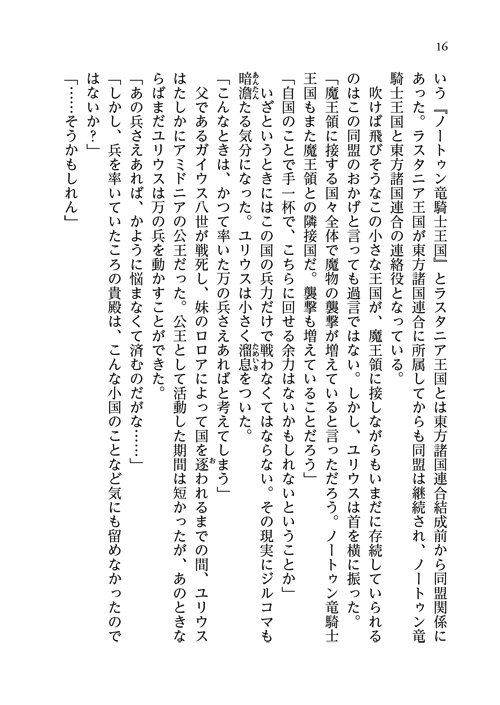 16
いう『ノートゥン竜騎士王国』とラスタニア王国とは東方諸国連合結成前から同盟関係に
あった。ラスタニア王国が東方諸国連合に所属してからも同盟は継続され、ノートゥン竜
騎士王国と東方諸国連合の連絡役となっている。
吹けば飛びそうなこの小さな王国が、魔王領に接しながらもいまだに存続していられる
のはこの同盟のおかげと言っても過言ではない。しかし、ユリウスは首を横に振った。
「魔王領に接する国々全体で魔物の襲撃が増えていると言っただろう。ノートゥン竜騎士
王国もまた魔王領との隣接国だ。襲撃も増えていることだろう」
「自国のことで手一杯で、こちらに回せる余力はないかもしれないということか」
いざというときにはこの国の兵力だけで戦わなくてはならない。その現実にジルコマも
暗澹あんたんたる気分になった。ユリウスは小さく溜息ためいきをついた。
「こんなときは、かつて率いた万の兵さえあればと考えてしまう」
父であるガイウス八世が戦死し、妹のロロアによって国を逐おわれるまでの間、ユリウス
はたしかにアミドニアの公王だった。公王として活動した期間は短かったが、あのときな
らばまだユリウスは万の兵を動かすことができた。
「あの兵さえあれば、かように悩まなくて済むのだがな……」
「しかし、兵を率いていたころの貴殿は、こんな小国のことなど気にも留めなかったので
はないか？」
「……そうかもしれん」